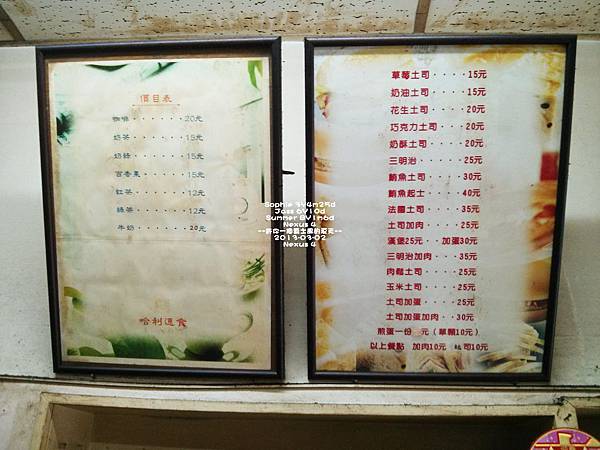 價目表
咖啡······20元
奶茶······15元
奶綠······15元
百香果·····15元
紅茶······12元
綠茶······12元
牛奶······20元
哈利速食
草莓土司····15元
奶油土司····15元
花生土司····20元
巧克力土司···20元
奶酥土司····20元
三明治·····25元
鮪魚土司····30元
鮪魚起士····40元
法國土司····35元
土司加肉····25元
漢堡25元··加蛋30元
三明治加肉···35元
肉鬆土司····25元
玉米土司····25元
土司加蛋····25元
土司加蛋加肉··30元
煎蛋一份 元(單顆10元)
以上餐點 加肉10元 起司10元
Sophie 3Y4m25d
Joss 6Y10d
Summer 8Y1m6d
Nexus 4
2013-03-02
Nexus 4